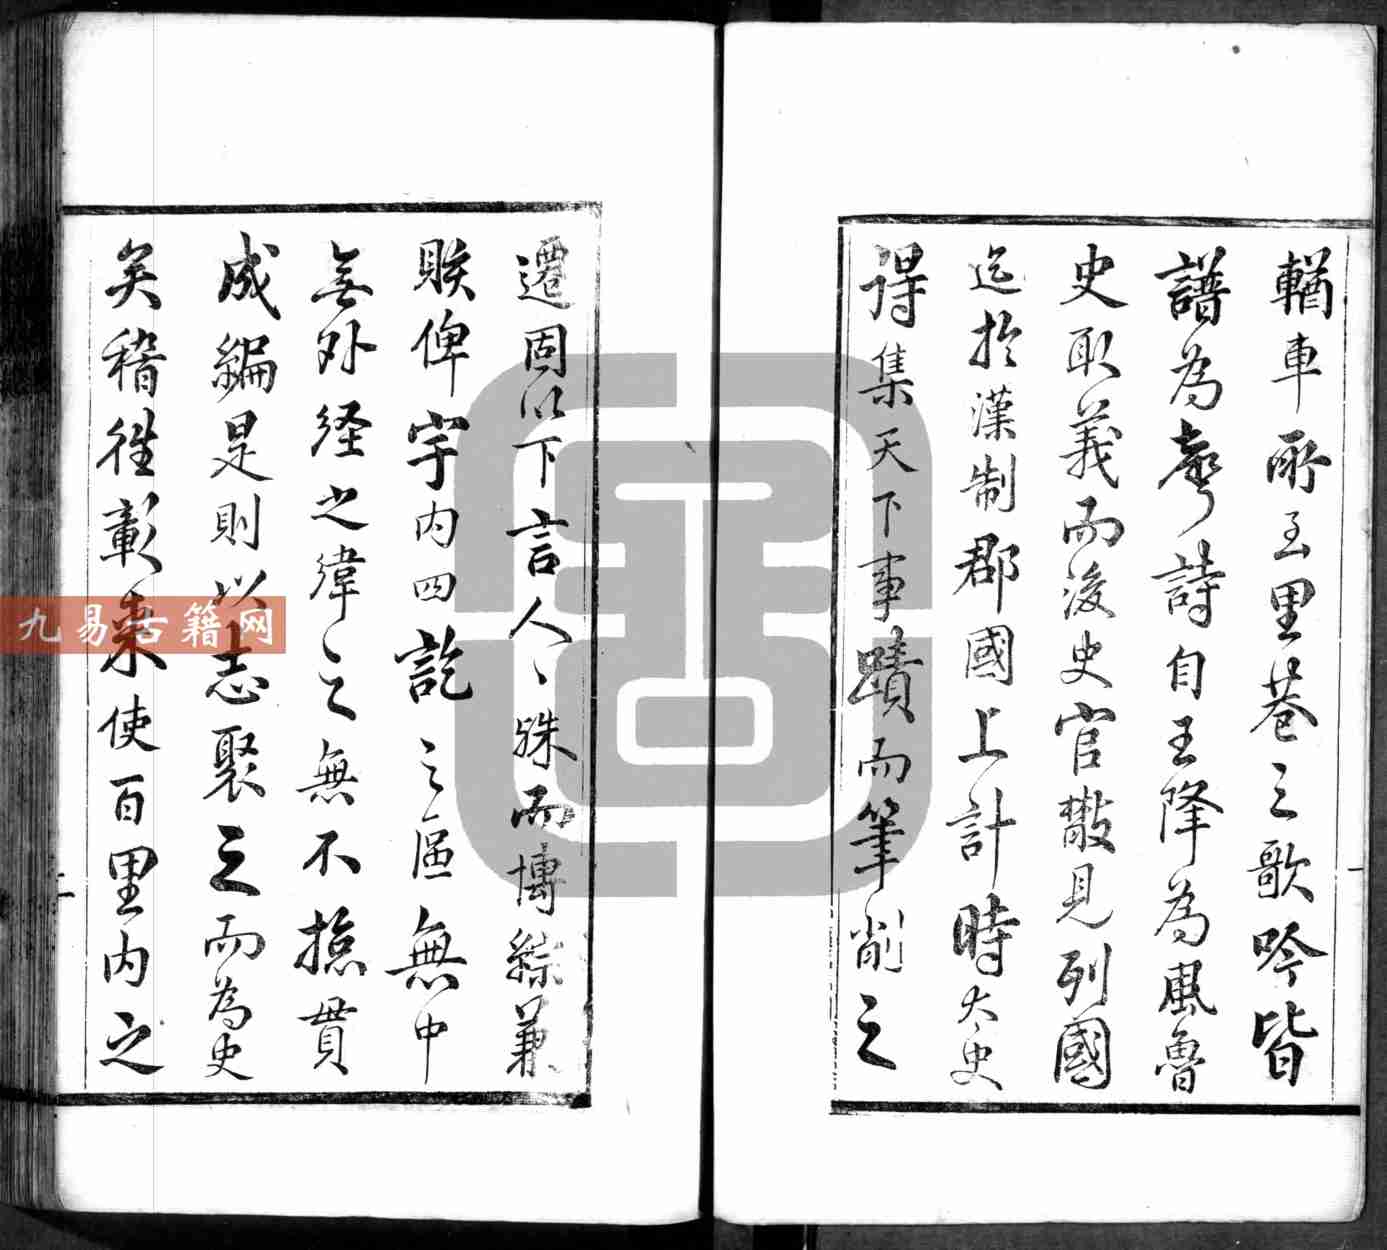 輶車所至里巷之歌吟皆
譜為聲詩自王降為風魯
史取義而後史官散見列國
迄於漢制郡國上計時太史
得集天下事蹟而筆削之
遷固以下言人人殊而博綜兼
賅俾宇內四訖之區無中
無外経之緯之無不摠貫
成編是則以志聚之而為史
矣稽徃彰来使百里内之
九易古籍网